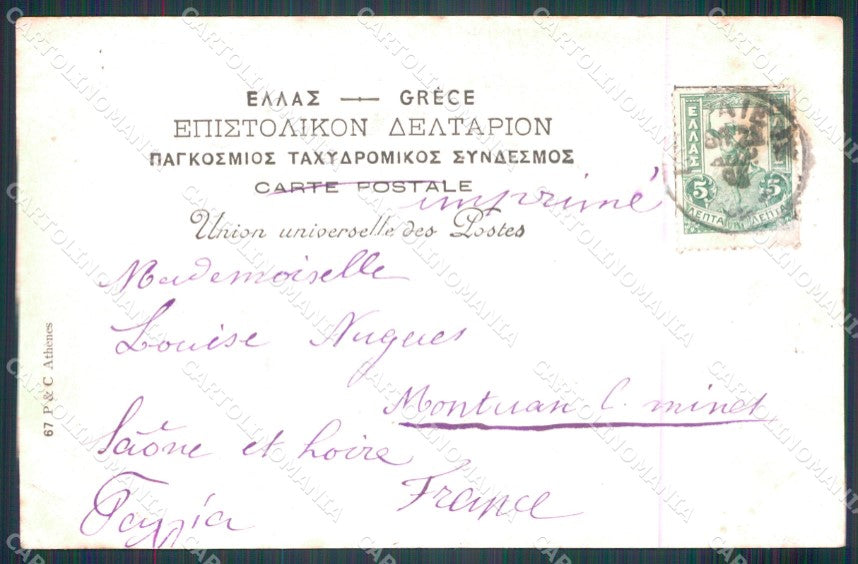 ΕΛΛΑΣ — GRÈCE
ΕΠΙΣΤΟΛΙΚΟΝ ΔΕΛΤΑΡΙΟΝ
ΠΑΓΚΟΣΜΙΟΣ ΤΑΧΥΔΡΟΜΙΚΟΣ ΣΥΝΔΕΣΜΟΣ
CARTE POSTALE
imprimé
Union universelle des Postes
ΕΛΛΑΣ
5 5
ΛΕΠΤΑ ΛΕΠΤΑ
Mademoiselle
Louise Nugues
Saône et Loire
France
Γαλλία
67 P & C Athenes
CARTOLINOMANIA